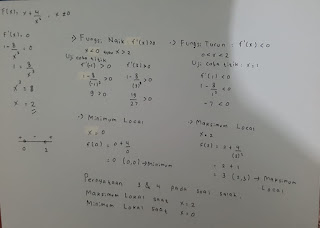 f(x) = x + 4/x² , x ≠ 0
f'(x) = 0
1 - 8/x³ = 0
1 = 8/x³
x³ = 8
x = 2
+ - +
0 2
-> Fungsi Naik f'(x) > 0
x < 0 atau x > 2
Uji coba titik
f'(x) > 0 f'(x) > 0
1 - 8/(-1)³ > 0 1 - 8/(3)³ > 0
9 > 0 19/27 > 0
-> Fungsi Turun : f'(x) < 0
0 < x < 2
Uji coba titik : x = 1
f'(1) < 0
1 - 8/1³ < 0
-7 < 0
-> Minimum Local
x = 0
f(0) = 0 + 4/0
= 0 (0,0) -> Minimum
-> Maksimum Local
x = 2
f(2) = x + 4/(2)²
= 2 + 1
= 3 (2,3) -> Maksimum Local
Pernyataan 3 & 4 pada soal salah.
Maksimum Local saat x = 2
Minimum Local saat x = 0